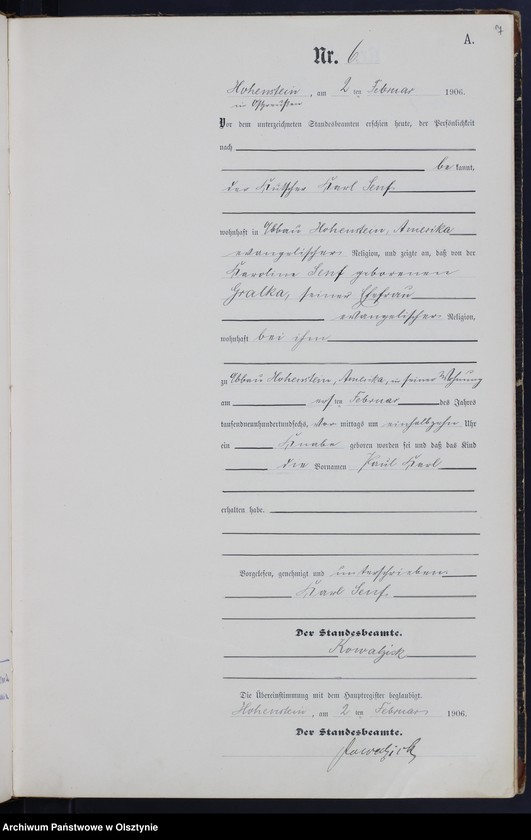 7
A.
Nr. 6
Hohenstein, am 2 ten Februar 1906.
in Ostpreußen
Vor dem unterzeichneten Standesbeamten erschien heute, der Persönlichkeit
nach
be kannt,
der Kutscher Karl Senf
wohnhaft in Abbau Hohenstein, Amerika
evangelischer Religion, und zeigte an, daß von der
Karoline Senf geborenen
Gralka, seiner Ehefrau
evangelischer Religion,
wohnhaft bei ihm
zu Abbau Hohenstein, Amerika, in seiner Wohnung
am ersten Februar des Jahres
tausendneunhundertundsechs, Vor mittags um einhalbzehn Uhr
ein Knabe geboren worden sei und daß das Kind
die Vornamen Paul Karl
erhalten habe.
Vorgelesen, genehmigt und unterschrieben
Karl Senf
Der Standesbeamte.
Kowalzick
Die Übereinstimmung mit dem Hauptregister beglaubigt.
Hohenstein, am 2 ten Februar 1906.
Der Standesbeamte.
Kowalzick
Archiwum Państwowe w Olsztynie